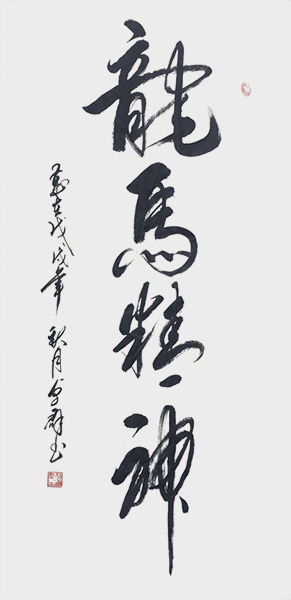 龍馬精神
歲在戊戌年秋月